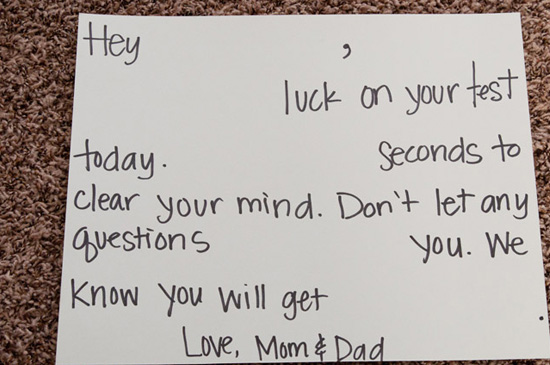 Hey ,
luck on your test
today. Seconds to
clear your mind. Don't let any
questions you. We
Know you will get .
Love, Mom & Dad